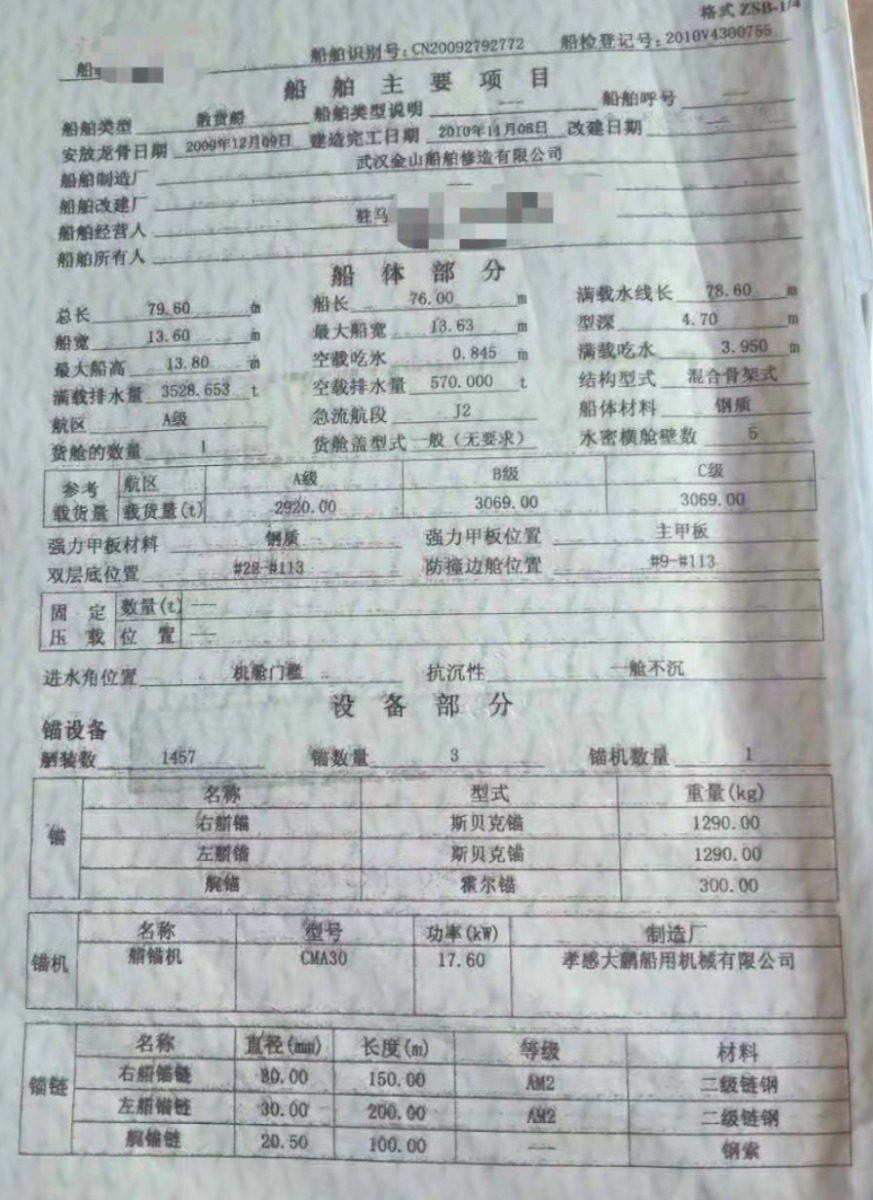 格式 ZSB-1/4
船 船舶识别号：CN20092792772 船检登记号：2010V4300755
船舶主要项目
船舶类型 散货船 船舶类型说明 --- 船舶呼号 ---
安放龙骨日期 2009年12月09日 建造完工日期 2010年11月08日 改建日期 ---
船舶制造厂 武汉金山船舶修造有限公司
船舶改建厂 ---
船舶经营人 驻马
船舶所有人
船体部分
总长 79.60 m 船长 76.00 m 满载水线长 78.60 m
船宽 13.60 m 最大船宽 13.63 m 型深 4.70 m
最大船高 13.80 m 空载吃水 0.845 m 满载吃水 3.950 m
满载排水量 3528.653 t 空载排水量 570.000 t 结构型式 混合骨架式
航区 A级 急流航段 J2 船体材料 钢质
货舱的数量 1 货舱盖型式 一般（无要求） 水密横舱壁数 5
参考 航区 A级 B级 C级
载货量 载货量(t) 2920.00 3069.00 3069.00
强力甲板材料 钢质 强力甲板位置 主甲板
双层底位置 #28-#113 防撞边舱位置 #9-#113
固定 数量(t) ---
压载 位置 ---
进水角位置 机舱门槛 抗沉性 一舱不沉
设备部分
锚设备
舾装数 1457 锚数量 3 锚机数量 1
名称 型式 重量(kg)
锚
右艏锚 斯贝克锚 1290.00
左艏锚 斯贝克锚 1290.00
艉锚 霍尔锚 300.00
名称 型号 功率(kW) 制造厂
锚机 艏锚机 CMA30 17.60 孝感大鹏船用机械有限公司
名称 直径(mm) 长度(m) 等级 材料
锚链
右艏锚链 30.00 150.00 AM2 二级链钢
左艏锚链 30.00 200.00 AM2 二级链钢
艉锚链 20.50 100.00 --- 钢索